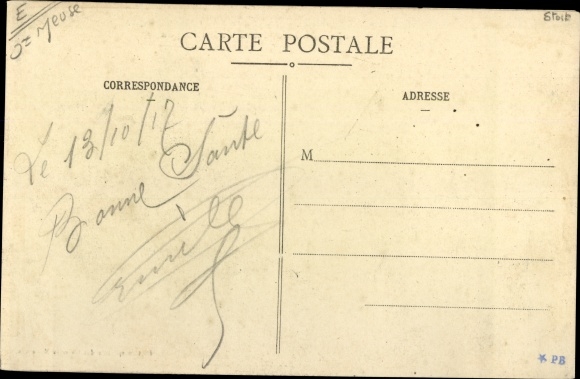 E
Meuse
Stock
CARTE POSTALE
CORRESPONDANCE
ADRESSE
Le 13/10/17
Bonne Santé
Emile
M
* PB